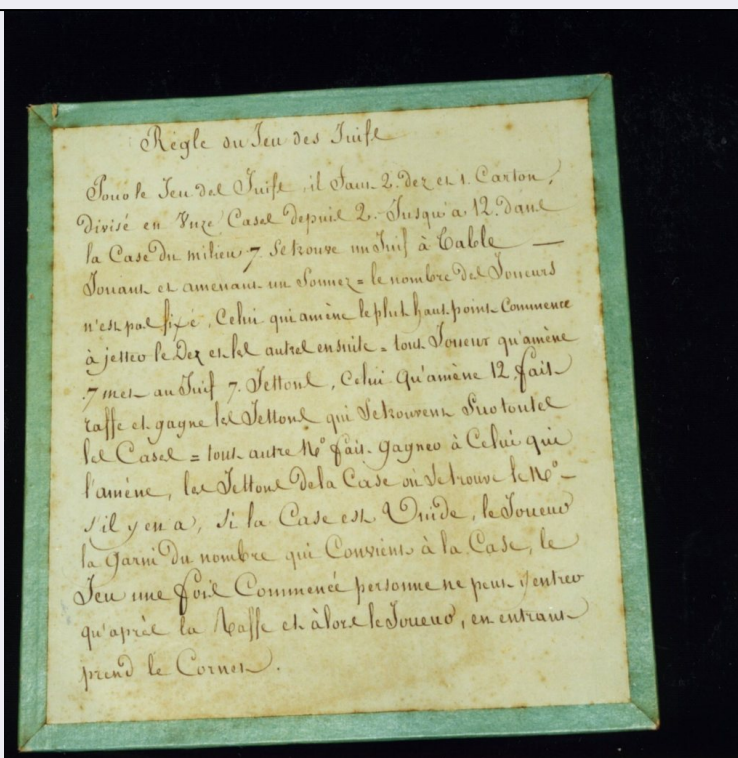 Règle du Jeu des Juifs
Pour le Jeu des Juifs, il faut 2. dez et 1. Carton,
divisé en Vnze Cases depuis 2. Jusqu'a 12. dans
la Case du milieu 7 Se trouve un Juif à Table —
Jouant et amenant un Sonnez = le nombre des Joueurs
n'est pas fixé, Celui qui amène le plus haut point Commence
à jetter le Dez et les autres ensuite = tout Joueur qu'amène
.7 met au Juif 7. Jettons, Celui qu'amène 12. fait
raffe et gagne les Jettons qui Se trouvent Sur toutes
les Cases = tout autre No fait gagner à Celui qui
l'amène, les Jettons de la Case où Se trouve le No –
s'il y en a, Si la Case est Vuide, le Joueur
la Garni du nombre qui Convient à la Case, le
Jeu une fois Commencé personne ne peut y entrer
qu'après la Raffe et àlors le Joueur, en entrant
prend le Cornet.